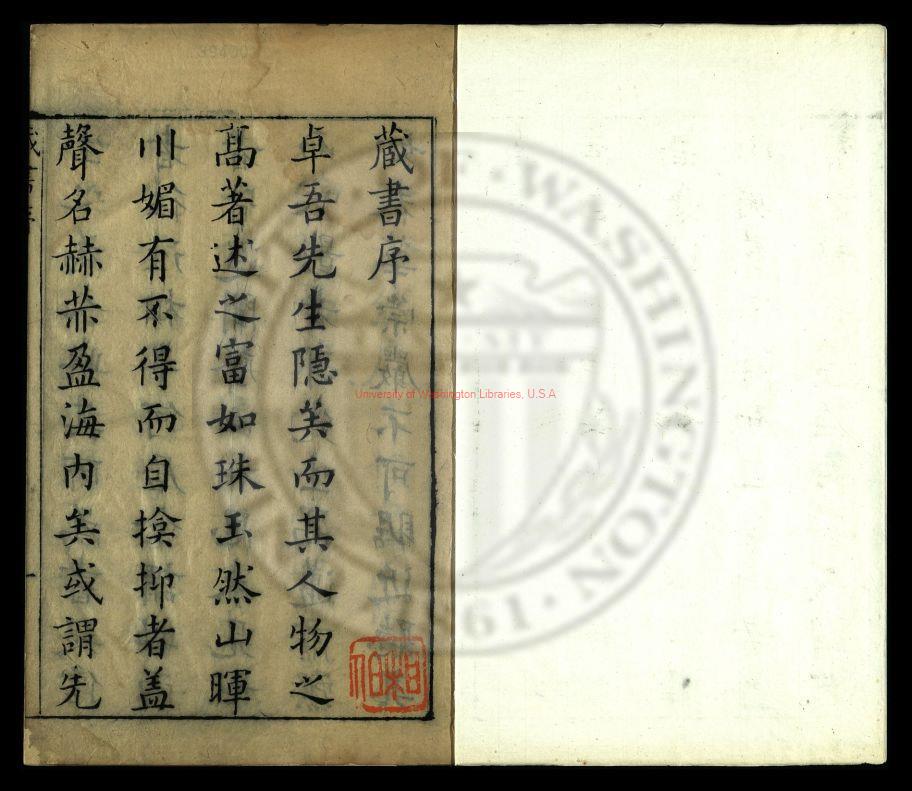 藏書序
卓吾先生隱矣而其人物之
髙著述之富如珠玉然山暉
川媚有不得而自揜抑者葢
聲名赫赫盈海内矣或謂先
University of Washington Libraries, U.S.A
WASHINGTON
1861